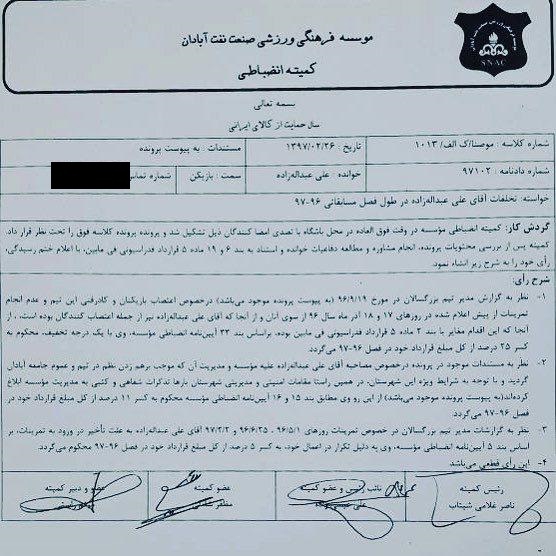 موسسه فرهنگی ورزشی صنعت نفت آبادان
کمیته انضباطی
SNAC
بسمه تعالی
سال حمایت از کالای ایرانی
شماره کلاسه : موصنا/ک الف/ ۱۰۱۳ تاریخ : ۱۳۹۷/۰۲/۲۶ مستندات : به پیوست پرونده
شماره دادنامه : ۹۷۱۰۲ خوانده : علی عبداله‌زاده سمت : بازیکن شماره تماس
خواسته: تخلفات آقای علی عبداله‌زاده در طول فصل مسابقاتی ۹۶-۹۷
گردش کار: کمیته انضباطی مؤسسه در وقت فوق العاده در محل باشگاه با تصدی امضا کنندگان ذیل تشکیل شد و پرونده پرونده کلاسه فوق را تحت نظر قرار داد.
کمیته پس از بررسی محتویات پرونده، انجام مشاوره و مطالعه دفاعیات خوانده و استناد به بند ۶ و ۱۹ ماده ۵ قرارداد فدراسیونی فی مابین، با اعلام ختم رسیدگی،
رأی خود را به شرح زیر انشاء نمود.
شرح رأی:
۱- نظر به گزارش مدیر تیم بزرگسالان در مورخ ۹۶/۹/۱۹ (به پیوست پرونده موجود می‌باشد) درخصوص اعتصاب بازیکنان و کادرفنی این تیم و عدم انجام
تمرینات از پیش اعلام شده در روزهای ۱۷ و ۱۸ آذر ماه سال ۹۶ از سوی آنان و از آنجا که آقای علی عبداله‌زاده نیز از جمله اعتصاب کنندگان بوده است ، از
آنجا که این اقدام مغایر با بند ۲ ماده ۵ قرارداد فدراسیونی فی مابین بوده، براساس بند ۳۳ آیین‌نامه انضباطی مؤسسه، وی با یک درجه تخفیف، محکوم به
کسر ۲۵ درصد از کل مبلغ قرارداد خود در فصل ۹۶-۹۷ می‌گردد.
۲- نظر به مستندات موجود در پرونده درخصوص مصاحبه آقای علی عبداله‌زاده علیه مؤسسه و مدیریت آن که موجب برهم زدن نظم در تیم و عموم جامعه آبادان
گردید و با توجه به شرایط ویژه این شهرستان، در همین راستا مقامات امنیتی و مدیریتی شهرستان بارها تذکرات شفاهی و کتبی به مدیریت مؤسسه ابلاغ
کرده‌اند(به پیوست پرونده موجود می‌باشد) از این رو وی مطابق بند ۱۵ و ۱۶ آیین‌نامه انضباطی مؤسسه محکوم به کسر ۱۱ درصد از کل مبلغ قرارداد خود در
فصل ۹۶-۹۷ می گردد.
۳- نظر به گزارشات مدیر تیم بزرگسالان در خصوص تمرینات روزهای ۹۶/۵/۱ - ۹۶/۶/۲۵ و ۹۷/۲/۲ آقای علی عبداله‌زاده به علت تأخیر در ورود به تمرینات، بر
اساس بند ۵ آیین‌نامه انضباطی مؤسسه، وی به دلیل تکرار در اعمال خود، به کسر ۵ درصد از کل مبلغ قرارداد خود در فصل ۹۶-۹۷ محکوم می گردد.
۴- این رأی قطعی می‌باشد
رئیس کمیته نائب رئیس و عضو کمیته عضو کمیته عضو و دبیر کمیته
ناصر غلامی شیتاب علی مظفر